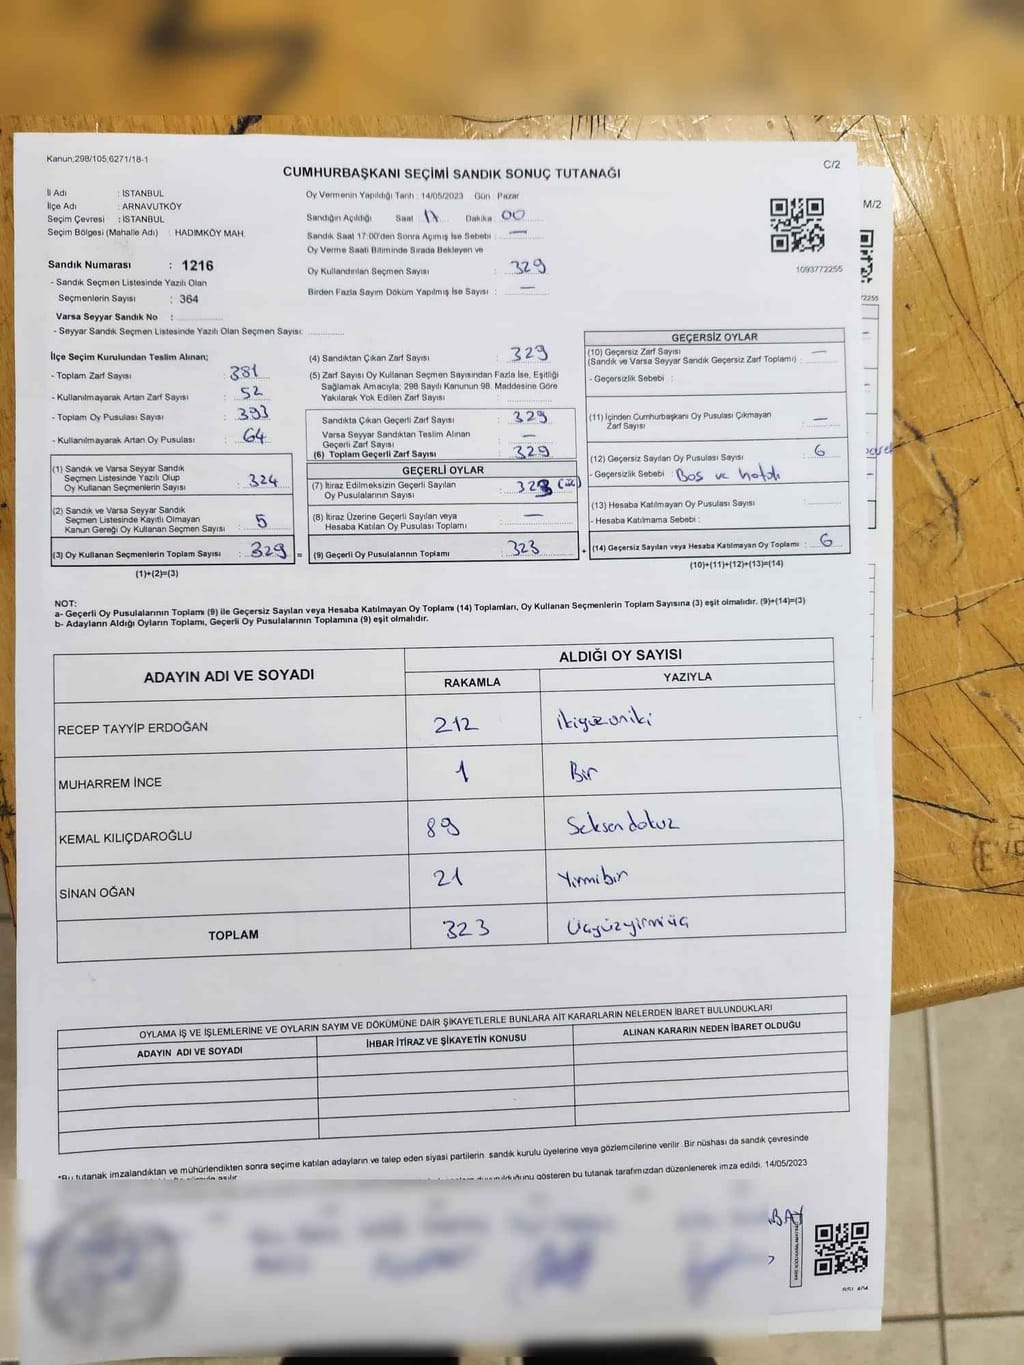 Kanun;298/105;6271/18-1
C/2
CUMHURBAŞKANI SEÇİMİ SANDIK SONUÇ TUTANAĞI
M/2
İl Adı : İSTANBUL
İlçe Adı : ARNAVUTKÖY
Seçim Çevresi : İSTANBUL
Seçim Bölgesi (Mahalle Adı) : HADIMKÖY MAH.
Oy Vermenin Yapıldığı Tarih : 14/05/2023 Gün Pazar
Sandığın Açıldığı Saat 17 Dakika 00
Sandık Saat 17:00'den Sonra Açımış İse Sebebi : —
Oy Verme Saati Bitiminde Sırada Bekleyen ve
Oy Kullandırılan Seçmen Sayısı : 329
Birden Fazla Sayım Döküm Yapılmış İse Sayısı : —
1093772255
Sandık Numarası : 1216
- Sandık Seçmen Listesinde Yazılı Olan
Seçmenlerin Sayısı : 364
Varsa Seyyar Sandık No :
- Seyyar Sandık Seçmen Listesinde Yazılı Olan Seçmen Sayısı:
İlçe Seçim Kurulundan Teslim Alınan;
- Toplam Zarf Sayısı : 381
- Kullanılmayarak Artan Zarf Sayısı : 52
- Toplam Oy Pusulası Sayısı : 393
- Kullanılmayarak Artan Oy Pusulası : 64
(1) Sandık ve Varsa Seyyar Sandık
Seçmen Listesinde Yazılı Olup
Oy Kullanan Seçmenlerin Sayısı : 324
(2) Sandık ve Varsa Seyyar Sandık
Seçmen Listesinde Kayıtlı Olmayan
Kanun Gereği Oy Kullanan Seçmen Sayısı : 5
(3) Oy Kullanan Seçmenlerin Toplam Sayısı : 329 =
(1)+(2)=(3)
(4) Sandıktan Çıkan Zarf Sayısı : 329
(5) Zarf Sayısı Oy Kullanan Seçmen Sayısından Fazla İse, Eşitliği
Sağlamak Amacıyla; 298 Sayılı Kanunun 98. Maddesine Göre
Yakılarak Yok Edilen Zarf Sayısı :
Sandıkta Çıkan Geçerli Zarf Sayısı : 329
Varsa Seyyar Sandıktan Teslim Alınan
Geçerli Zarf Sayısı : —
(6) Toplam Geçerli Zarf Sayısı : 329
GEÇERLİ OYLAR
(7) İtiraz Edilmeksizin Geçerli Sayılan
Oy Pusulalarının Sayısı : 323 (üç)
(8) İtiraz Üzerine Geçerli Sayılan veya
Hesaba Katılan Oy Pusulası Toplamı : —
(9) Geçerli Oy Pusulalarının Toplamı : 323 +
GEÇERSİZ OYLAR
(10) Geçersiz Zarf Sayısı
(Sandık ve Varsa Seyyar Sandık Geçersiz Zarf Toplamı) : —
- Geçersizlik Sebebi :
(11) İçinden Cumhurbaşkanı Oy Pusulası Çıkmayan
Zarf Sayısı : —
(12) Geçersiz Sayılan Oy Pusulası Sayısı : 6
- Geçersizlik Sebebi : Boş ve hatalı
(13) Hesaba Katılmayan Oy Pusulası Sayısı :
- Hesaba Katılmama Sebebi :
(14) Geçersiz Sayılan veya Hesaba Katılmayan Oy Toplamı : 6
(10)+(11)+(12)+(13)=(14)
NOT:
a- Geçerli Oy Pusulalarının Toplamı (9) ile Geçersiz Sayılan veya Hesaba Katılmayan Oy Toplamı (14) Toplamları, Oy Kullanan Seçmenlerin Toplam Sayısına (3) eşit olmalıdır. (9)+(14)=(3)
b- Adayların Aldığı Oyların Toplamı, Geçerli Oy Pusulalarının Toplamına (9) eşit olmalıdır.
ADAYIN ADI VE SOYADI ALDIĞI OY SAYISI
RAKAMLA YAZIYLA
RECEP TAYYİP ERDOĞAN 212 ikiyüzoniki
MUHARREM İNCE 1 Bir
KEMAL KILIÇDAROĞLU 89 Seksendokuz
SİNAN OĞAN 21 Yirmibir
TOPLAM 323 Üçyüzyirmiüç
OYLAMA İŞ VE İŞLEMLERİNE VE OYLARIN SAYIM VE DÖKÜMÜNE DAİR ŞİKAYETLERLE BUNLARA AİT KARARLARIN NELERDEN İBARET BULUNDUKLARI
ADAYIN ADI VE SOYADI İHBAR İTİRAZ VE ŞİKAYETİN KONUSU ALINAN KARARIN NEDEN İBARET OLDUĞU
*Bu tutanak imzalandıktan ve mühürlendikten sonra seçime katılan adayların ve talep eden siyasi partilerin sandık kurulu üyelerine veya gözlemcilerine verilir. Bir nüshası da sandık çevresinde
gösteren bu tutanak tarafımızdan düzenlenerek imza edildi. 14/05/2023
BAY